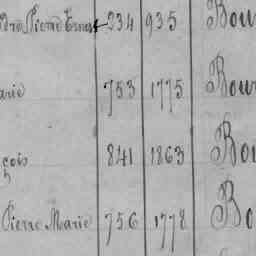 Pierre Ernest 234 935 Bour
arie 753 1775 Bour
çois 841 1863 Bou
Pierre Marie 756 1778 Bo